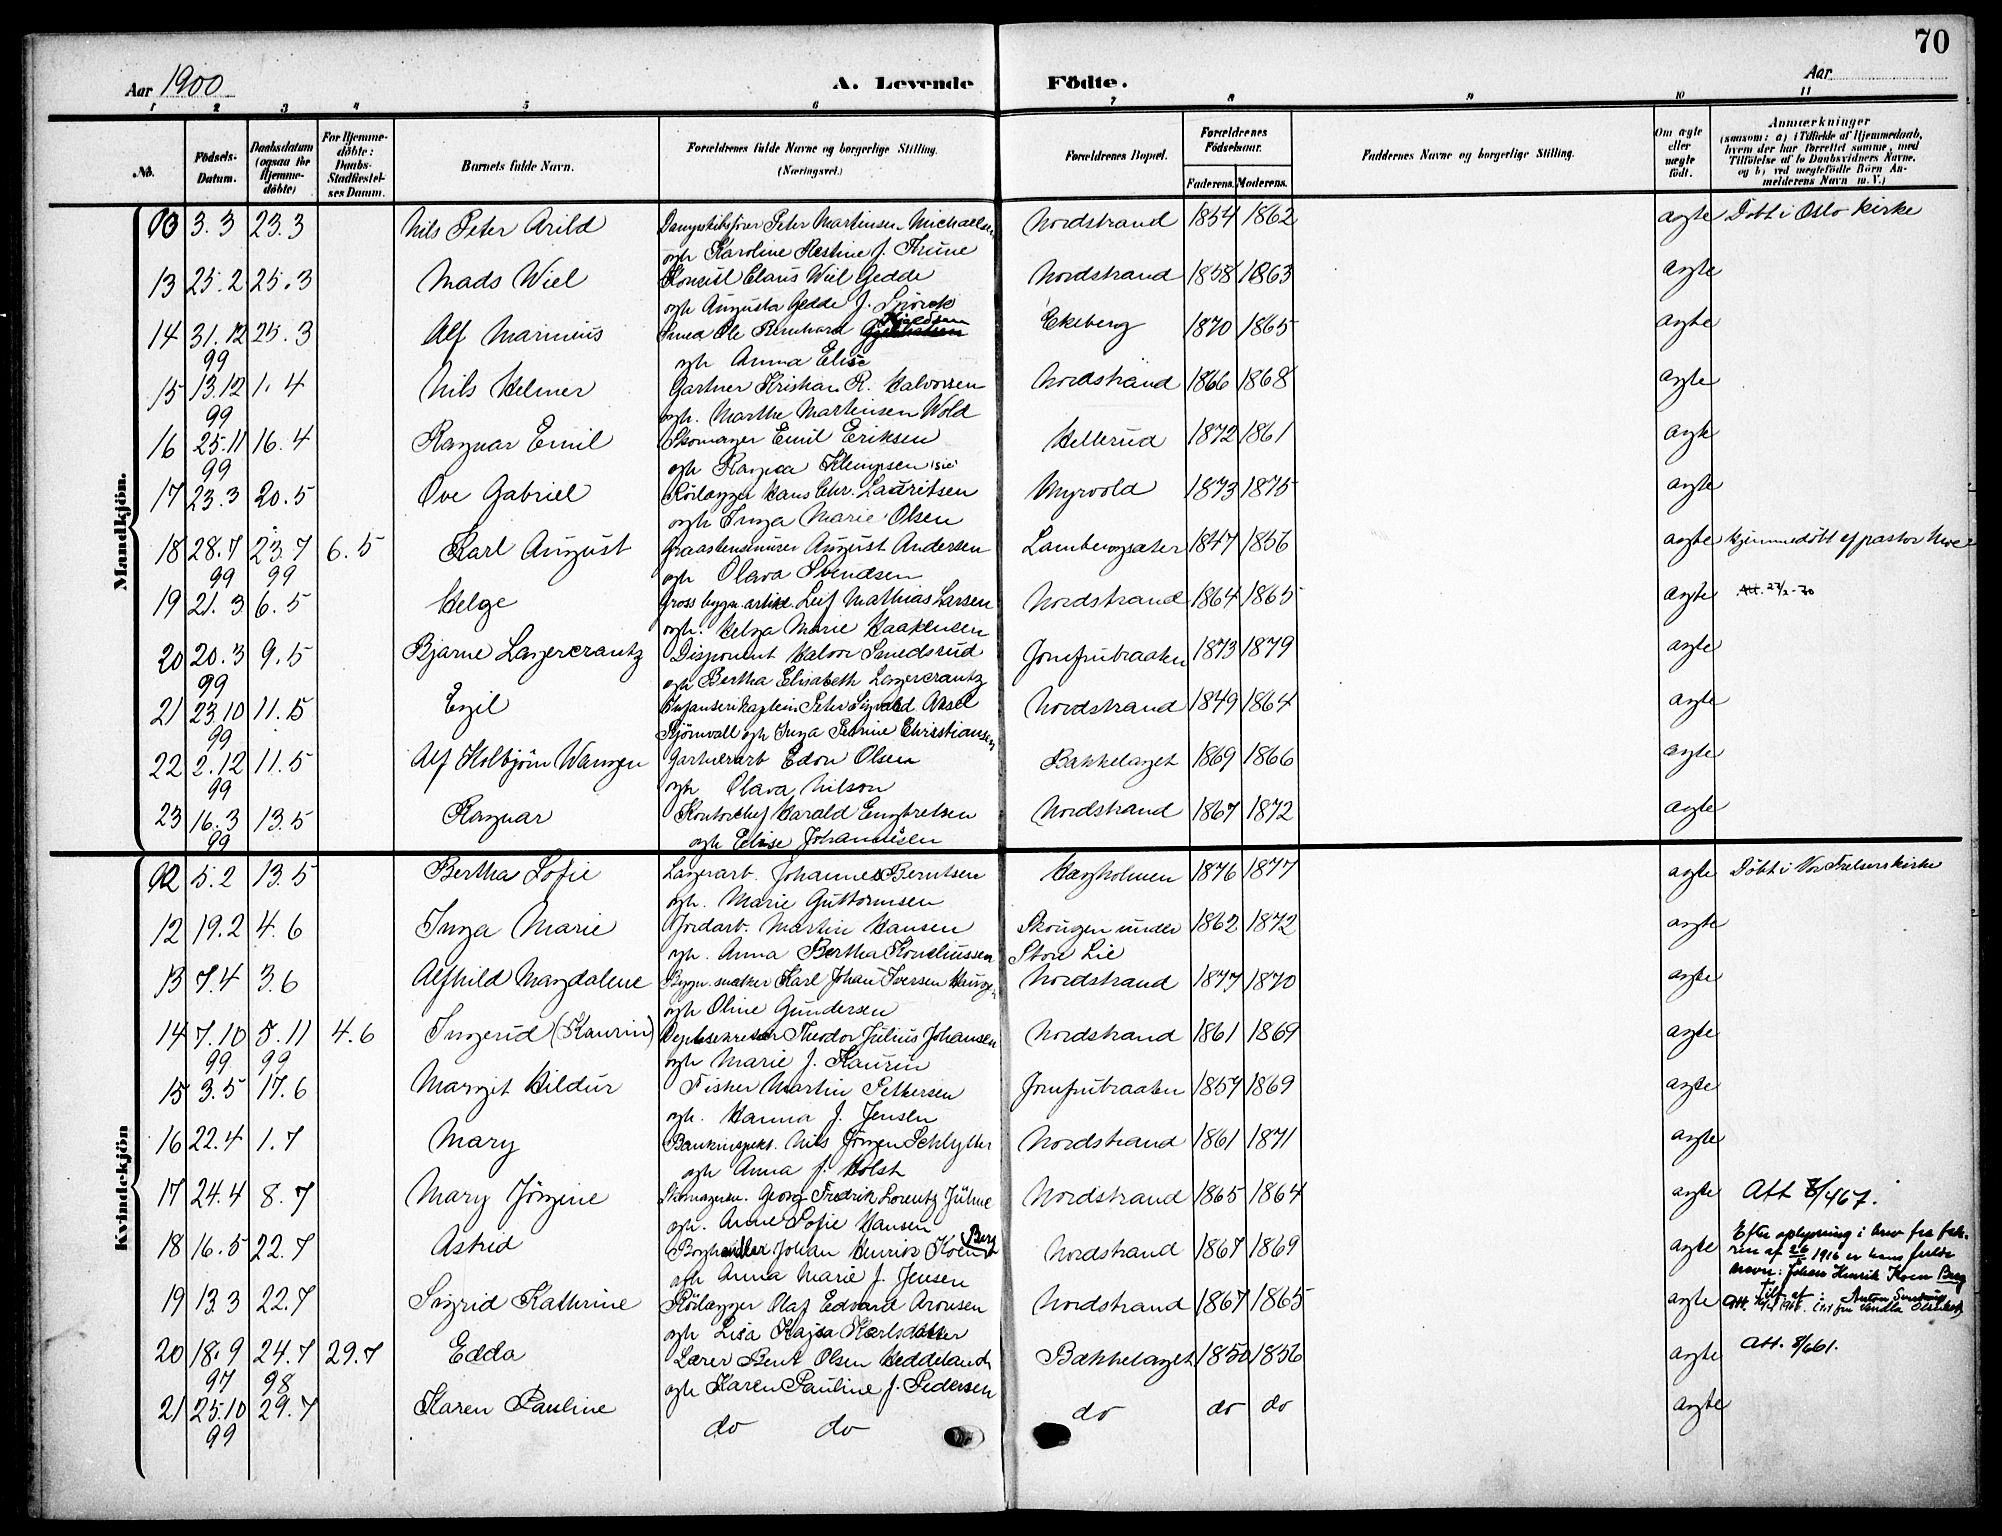 70
Aar 1900
A. Levende Födte.
Aar
1 2 3 4 5 6 7 8 9 10 11
No. Födsels-Datum. Daabsdatum (ogsaa for Hjemmedöbte) For Hjemmedöbte: Daabs-Stadfæstelses Datum. Barnets fulde Navn. Forældrenes fulde Navne og borgerlige Stilling. (Næringsvei.) Forældrenes Bopæl. Forældrenes Födselsaar. Faderens. Moderens. Faddernes Navne og borgerlige Stilling. Om ægte eller uægte födt. Anmærkninger (saasom: a) i Tilfælde af Hjemmedaab, hvem der har forrettet samme, med Tilföielse af to Daabsvidners Navne, og b) ved uægtefödte Börn Anmelderens Navn m. V.)
Mandkjön.
3.3 23.3 Nils Peter Arild Peter Martinsen Michaelsen Nordstrand 1854 1862 ægte Döbt i Oslo kirke
ogh Karoline Restine f. Thune
13 25.2 25.3 Mads Wiel Konsul Claus Wiel Gedde Nordstrand 1858 1863 ægte
ogh Augusta Gedde f. Spörck
14 31.12 25.3 Alf Marinius Smed Ole Bernhard Ekeberg 1870 1865 ægte
99 ogh Anna Elise
15 13.12 1.4 Nils Helmer Gartner Kristian R. Halvorsen Nordstrand 1866 1868 ægte
99 ogh. Marthe Martinsen Wold
16 25.11 16.4 Ragnar Emil Skomager Emil Eriksen Hellerud 1872 1861 ægte
99 ogh Ragna
17 23.3 20.5 Ove Gabriel Rörlægger Hans Chr. Lauritsen Myrvold 1873 1875 ægte
ogh Inga Marie Olsen
18 28.7 23.7 6.5 Karl August August Andersen 1847 1856 ægte Hjemmedöbt af pastor
99 99 ogh Olava Svendsen
19 21.3 6.5 Helge Leif Mathias Larsen Nordstrand 1864 1865 ægte
ogh. Helga Marie Haakensen
20 20.3 9.5 Bjarne Lagercrantz Disponent Halvor Smedsrud Jomfrubraaten 1873 1879 ægte
99 ogh Bertha Elisabeth Lagercrantz
21 23.10 11.5 Egil Infanterikaptein Peter Sigvald Aksel Nordstrand 1849 1864 ægte
99 ogh Inga Christiansen
22 2.12 11.5 Alf Kolbjörn Wangen Gartnerarb Edon Olsen Bækkelaget 1869 1866 ægte
99 ogh Olava Nilson
23 16.3 13.5 Ragnar Kontorchef Harald Engbretsen Nordstrand 1867 1872 ægte
99 ogh Elise Johannesen
Kvindekjön
5.2 13.5 Bertha Sofie Lagerarb. Johannes Berntsen Hægholmen 1876 1877 ægte Döbt i Vor Frelsers kirke
ogh. Marie Guttormsen
12 19.2 4.6 Inga Marie Jordarb. Martin Hansen Skougen under 1862 1872 ægte
ogh. Anna Bertha Korneliussen Store Lie
13 7.4 3.6 Alfhild Magdalene Bygn.snekker Karl Johan Iversen Nordstrand 1877 1870 ægte
ogh Oline Gundersen
14 7.10 5.11 4.6 Ingerid (Kaurin) Theodor Julius Johansen Nordstrand 1861 1869 ægte
99 99 ogh Marie f. Kaurin
15 3.5 17.6 Margit Hildur Fisker Martin Pettersen Jomfrubraaten 1857 1869 ægte
ogh. Hanna f. Jensen
16 22.4 1.7 Mary Bankinspekt. Nils Jörgen Schlytter Nordstrand 1861 1871 ægte
ogh Anna f. Holst
17 24.4 8.7 Mary Jörgine Georg Fredrik Lorentz Nordstrand 1865 1864 ægte Att 8/467.
ogh. Anne Sofie Hansen
18 16.5 22.7 Astrid Boghandler Johan Henrik Koen Berg Nordstrand 1867 1869 ægte Efter oplysning i brev fra fak-
ren af 26/ 1916 er hans fulde
navn: Johan Henrik Koen Berg
ogh Anna Marie f. Jensen
19 13.3 22.7 Sigrid Kathrine Rörlægger Olaf Edvard Aronsen Nordstrand 1867 1865 ægte
ogh Lisa Kajsa Karlsdatter
20 18.9 24.7 29.7 Edda Lærer Bent Olsen Heddeland Bækkelaget 1850 1856 ægte Att. 8/661.
97 98 ogh Karen Pauline f. Pedersen
21 25.10 29.7 Karen Pauline do do do do do ægte
99